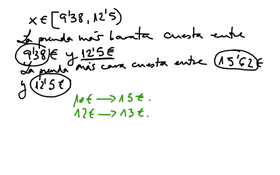 x ∈ [9'38, 12'5)
La prenda más barata cuesta entre
9'38€ y 12'5€
La prenda más cara cuesta entre 15'62€
y 12'5€
10€ → 15€.
12€ → 13€.